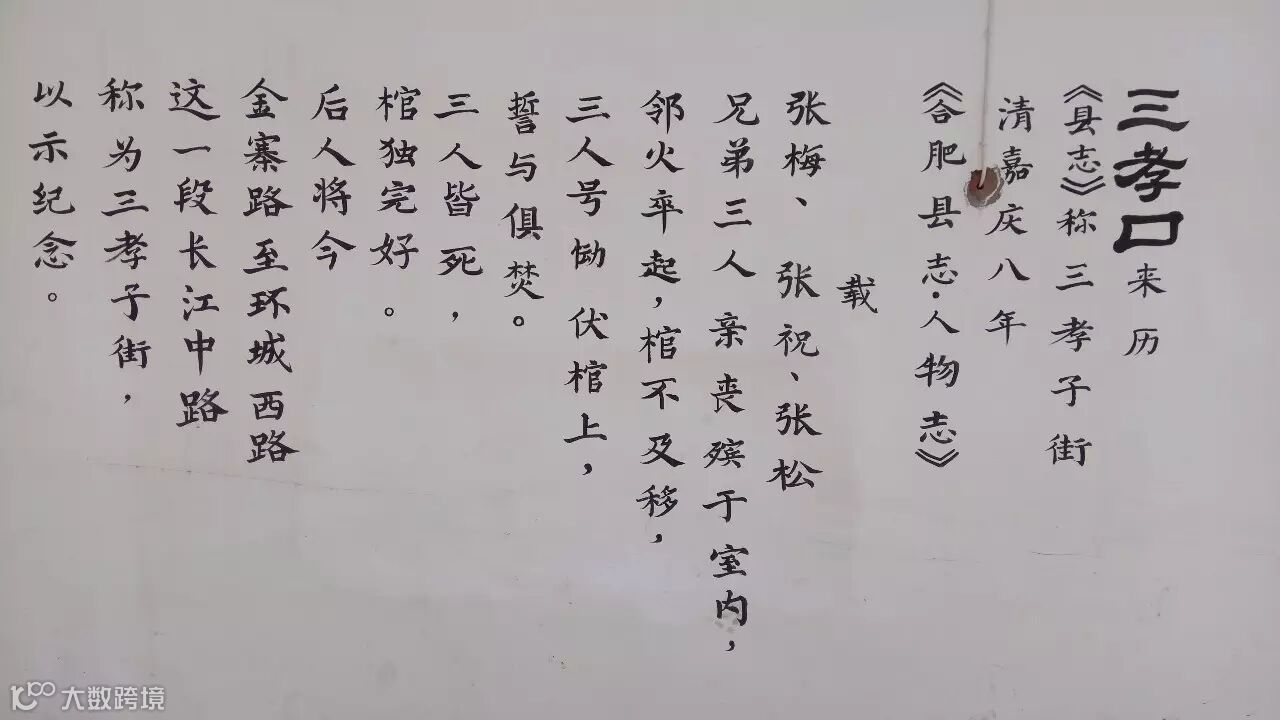 三孝口来历
《县志》称三孝子街
清嘉庆八年
《合肥县志·人物志》
载
张梅、张祝、张松
兄弟三人亲丧殡于室内，
邻火卒起，棺不及移，
三人号恸伏棺上，
誓与俱焚。
三人皆死，
棺独完好。
后人将今
金寨路至环城西路
这一段长江中路
称为三孝子街，
以示纪念。
大数跨境